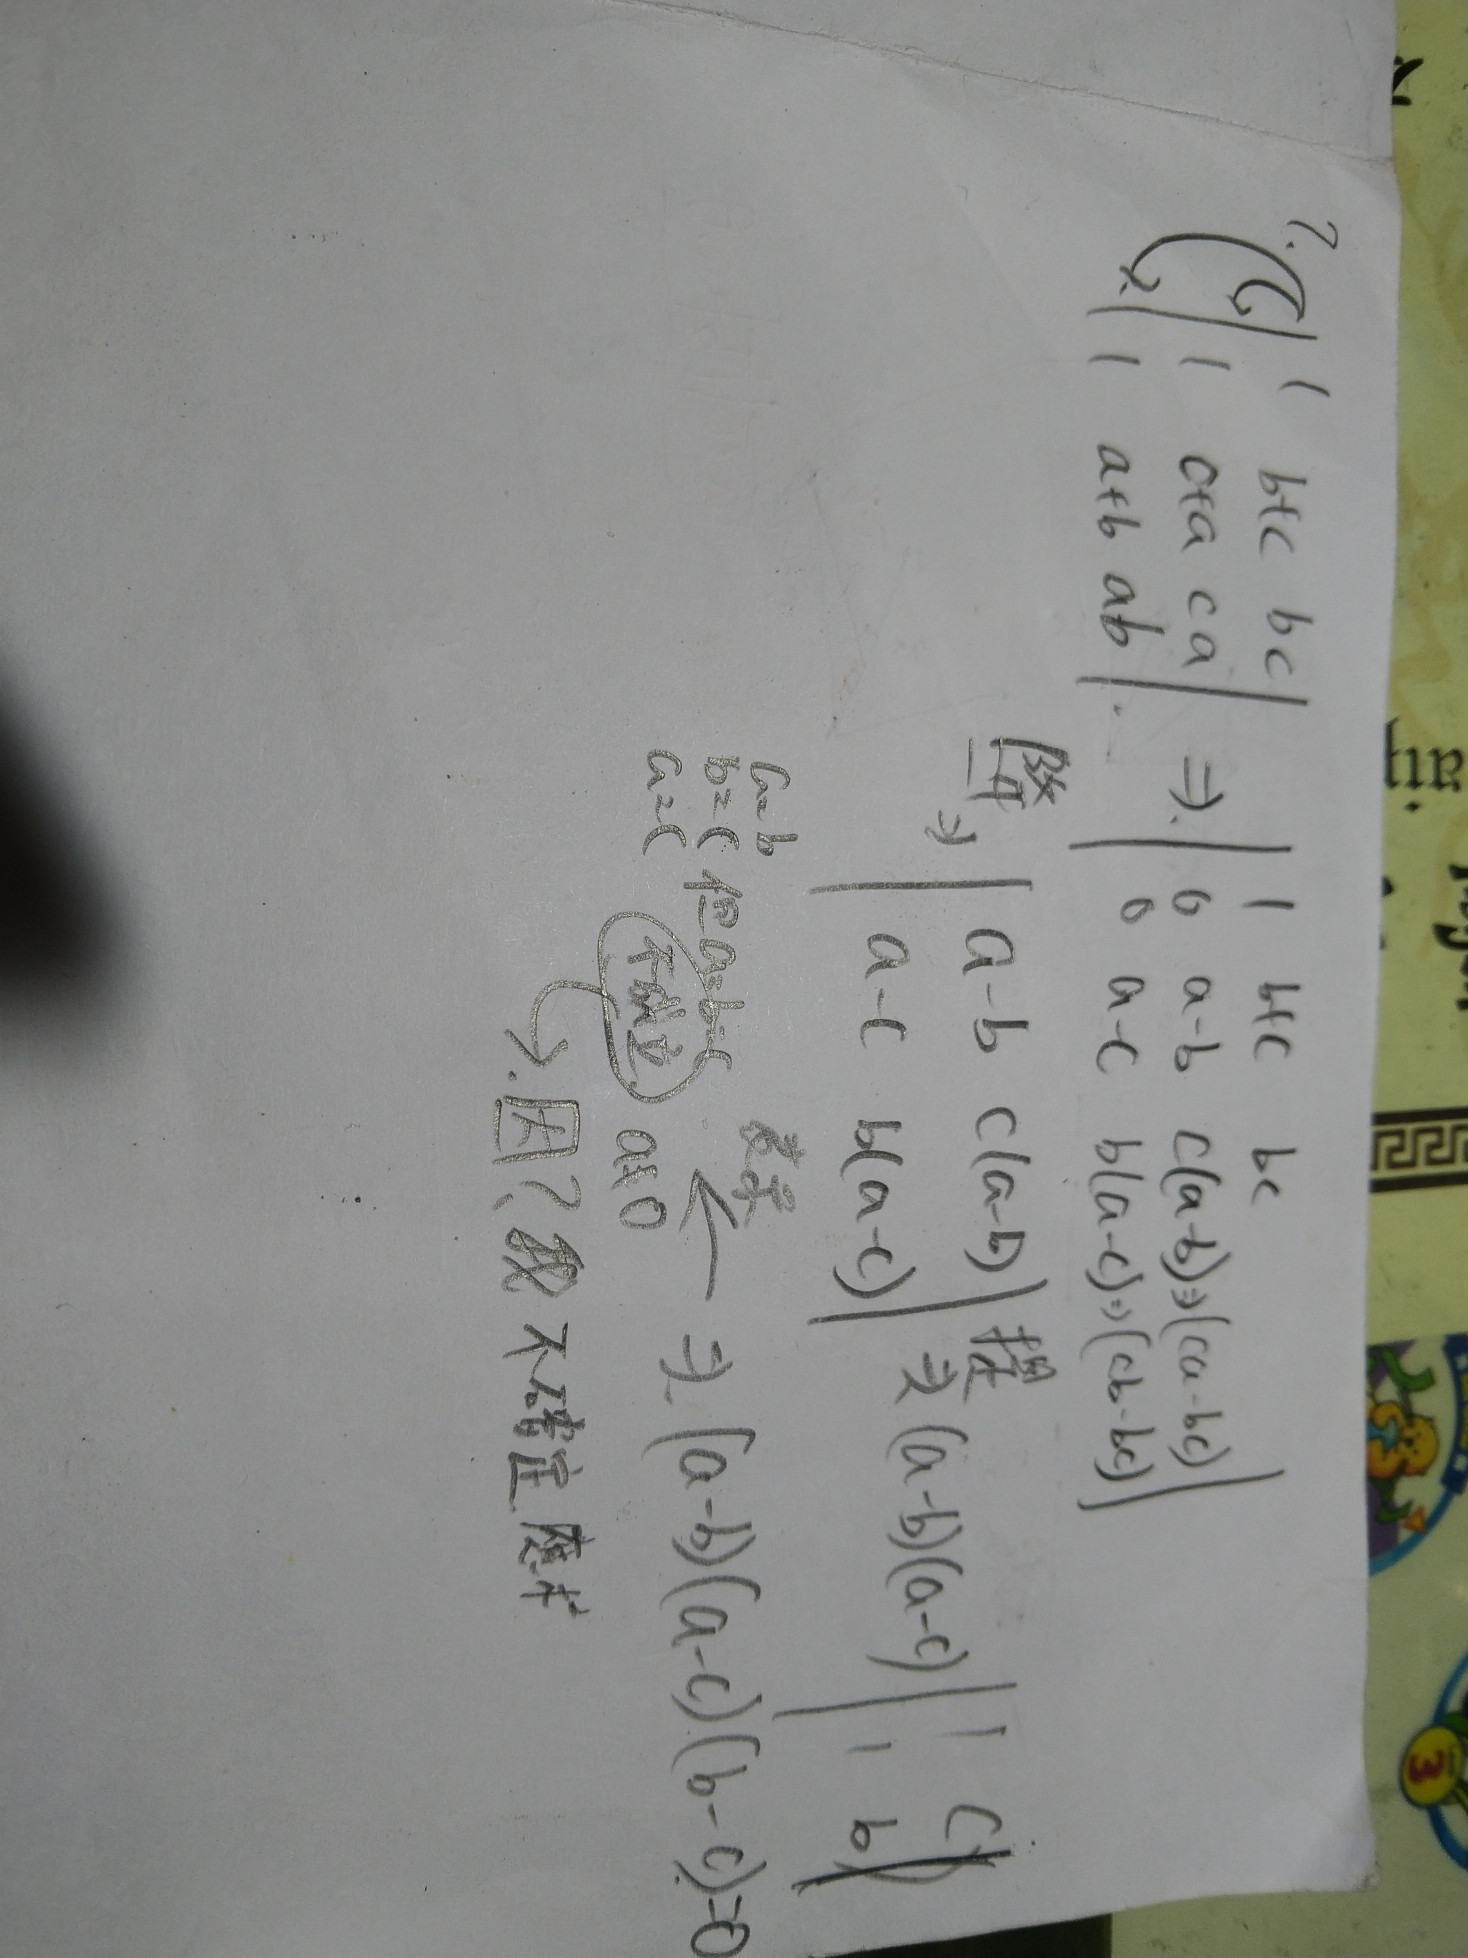 ?.
| 1 b+c bc |
| 1 c+a ca |
| 1 a+b ab |
⇒
| 1 b+c bc |
| 0 a-b c(a-b)⇒(ca-bc) |
| 0 a-c b(a-c)⇒(ab-bc) |
降階 ⇒
| a-b c(a-b) |
| a-c b(a-c) |
提 ⇒ (a-b)(a-c)
| 1 c |
| 1 b |
⇒ (a-b)(a-c)(b-c)=0
←
a=b
b=c 但a=b=c
a=c 不成立 a≠0
因?我不確定